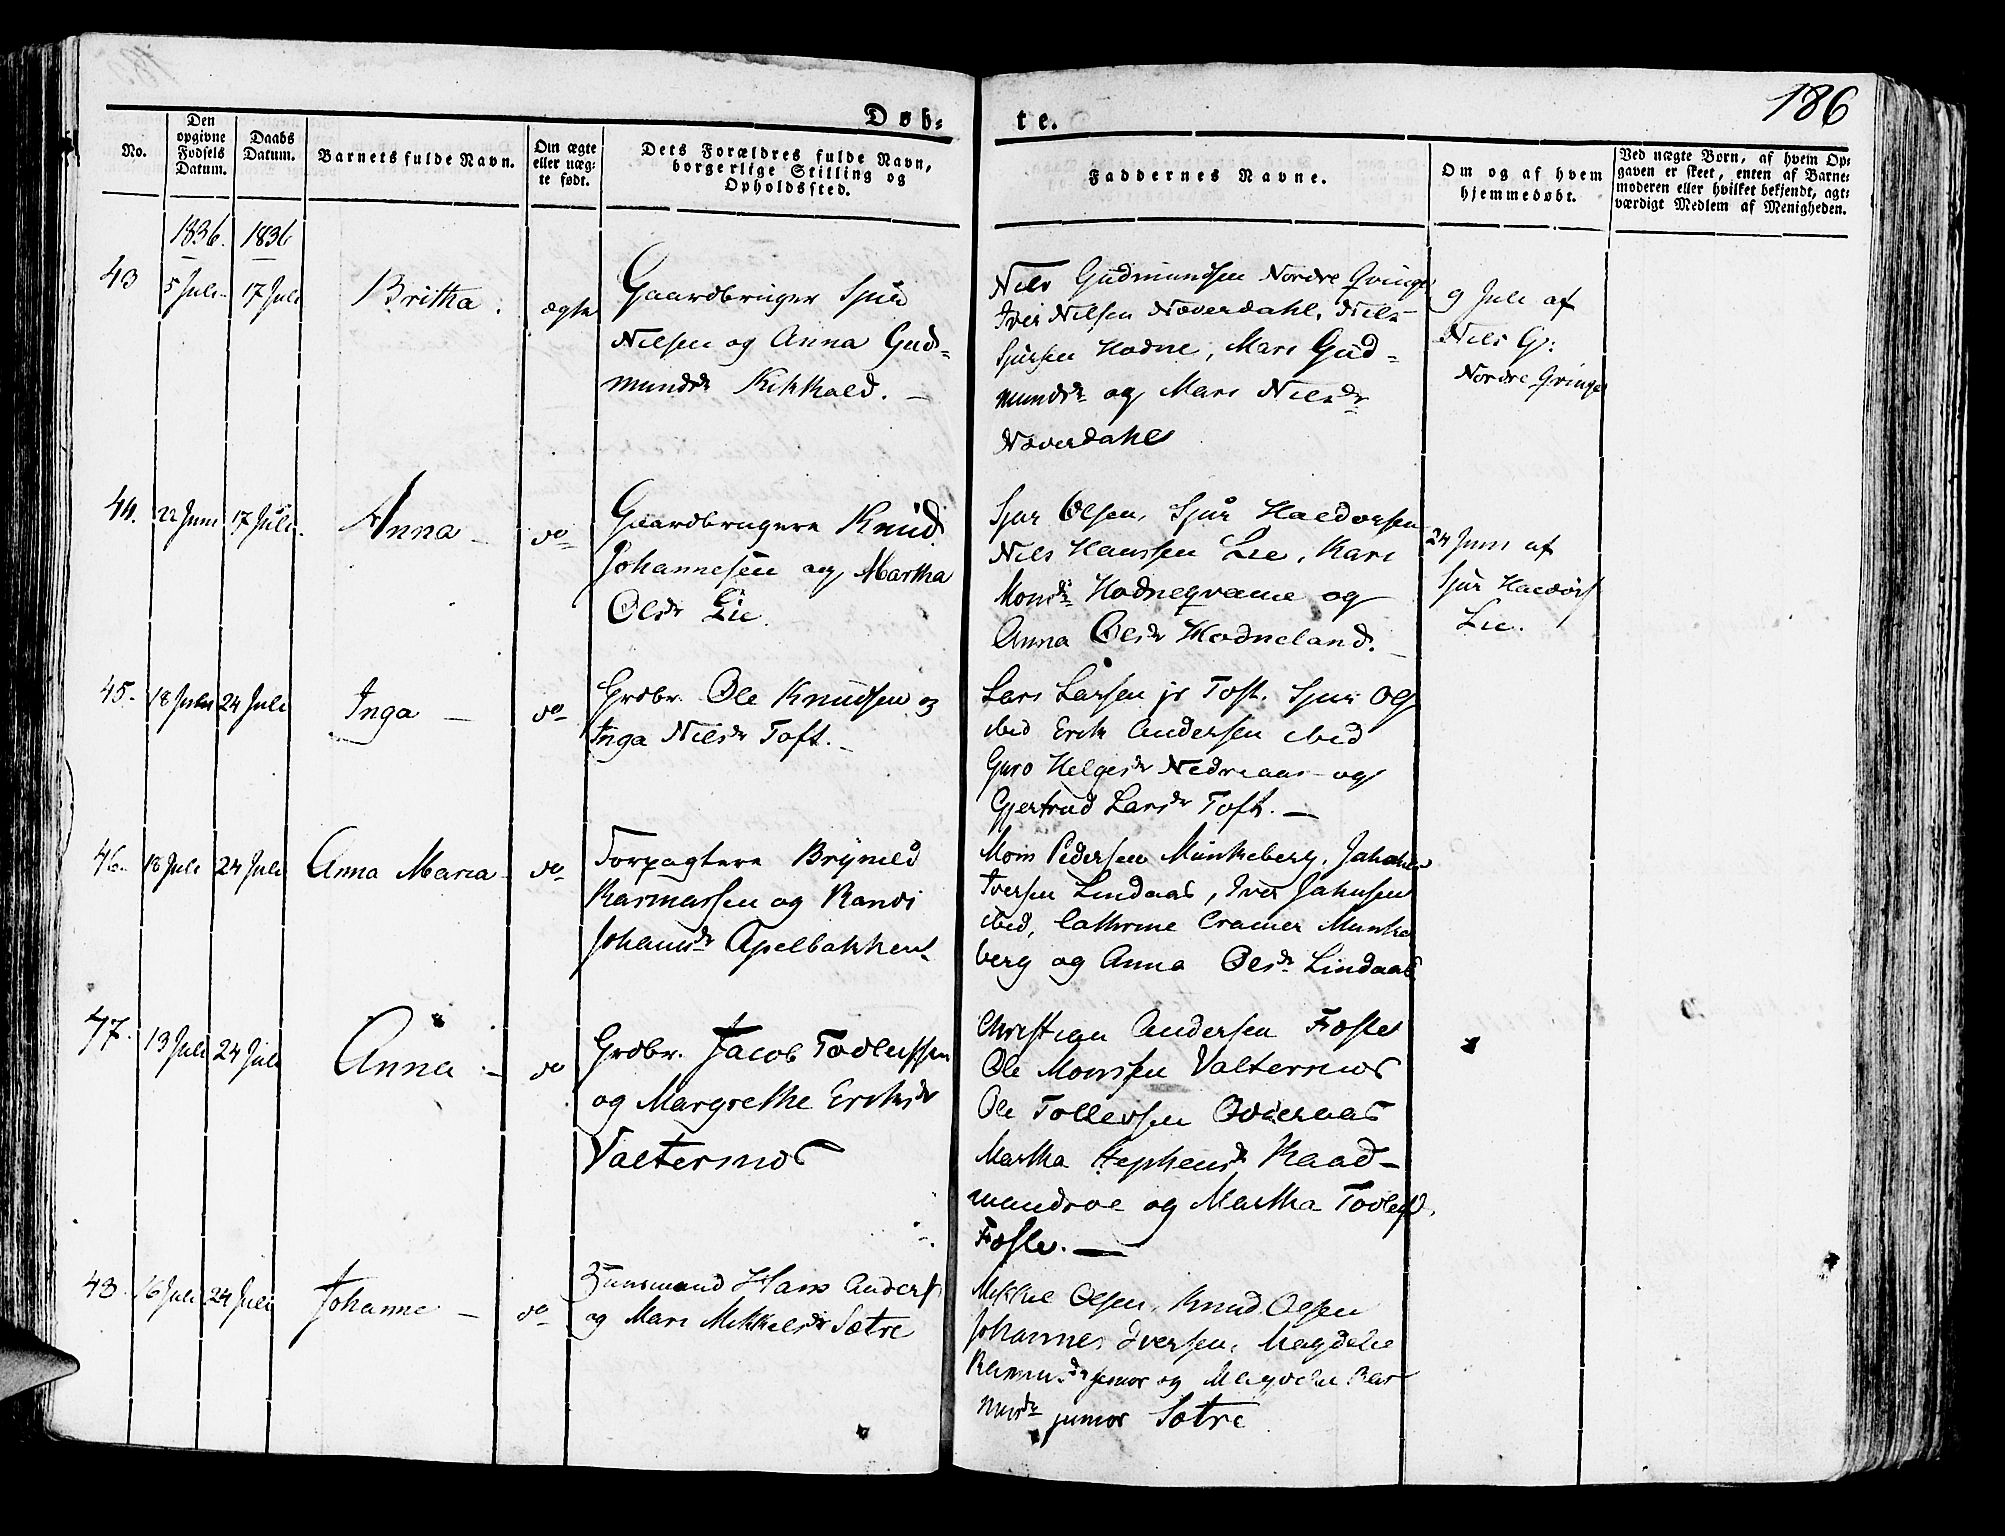 186
Døb-
te.
No.
Den
opgivne
Fødsels
Datum.
Daabs
Datum.
Barnets fulde Navn.
Om ægte
eller uæg-
te født.
Dets Forældres fulde Navn,
borgerlige Stilling og
Opholdsfted.
Faddernes Navne.
Om og af hvem
hjemmedøbt.
Ved uægte Børn, af hvem Op-
gaven er skeet, enten af Barne-
moderen eller hvilket bekjendt, agt-
værdigt Medlem af Menigheden.
1836. 1836
43 5 Juli 17 Juli Britha. ægte
Gaardbruger Sjur
Nilsen og Anna Gud-
mundsdr
Nils Gudmundsen Nordre Qvinge
Iver Nilsen Næverdahl, Nils
Sjursen Hodne, Mari Gud-
mundsdr og Mari Nilsdr
Næverdahl
9 Juli af
Nils G:
Nordre Qvinge
44. 22 Juni 17 Juli. Anna - do
Gaardbrugere Knud
Johannesen og Martha
Olsdr Lie.
Sjur Olsen, Sjur Haldorsen
Nils Hanssen Lie, Kari
Monsdr Hodneqvame og
Anna Olsdr Hodneland.
24 Juni af
Sjur Haldors
Lie.
45. 18 24 Juli Inga - do
Grdbr. Ole Knudsen og
Inga Nilsdr Toft.
Lars Larsen jr Toft. Sjur Ols
ibid Erik Andersen ibid
Guro Helgesdr Nedreaas og
Gjertrud Larsdr Toft. -
46. 18 Juli 24 Juli Anna Maria - do
Forpagtere Brynild
Rasmussen og Randi
Johansdr Apelbakken
Mons Pedersen Munkeberg, Johannes
Iversen Lindaas, Iver Johnsen
ibid, Cathrine Cramer Munke
berg og Anna Olsdr Lindaas
47. 13 Juli 24 Juli Anna - do
Grdbr. Jacob Todleifssen
og Margrethe Eriksdr
Valtersnos
Christian Andersen Foste
Ole Monssen Valtersnos
Ole Tollevsen
Martha Stephensdr Raad-
og Martha
Foste. -
48. 16 Juli 24 Juli Johanne - do
Huusmand Hans Anders
og Mari Mikkelsdr Sætre
Mikkel Olsen, Knud Olsen
Johannes Iversen, Magdele
Rasmusdr og Magdele Ras
musdr junior Sætre